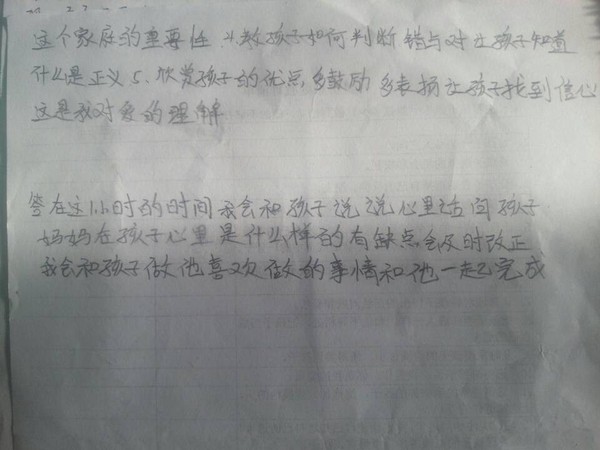 这个家庭的重要性.4.教孩子如何判断错与对让孩子知道
什么是正义5.欣赏孩子的优点,多鼓励多表扬让孩子找到信心
这是我对爱的理解
答在这1小时的时间我会和孩子说说心里话问孩子
妈妈在孩子心里是什么样的有缺点,会及时改正
我会和孩子做他喜欢做的事情和他一起完成